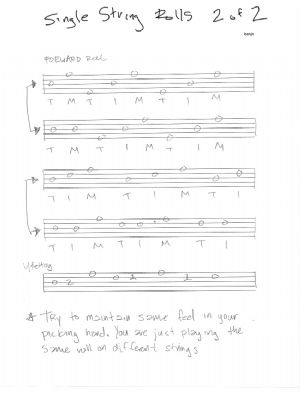 Single String Rolls 2 of 2
banjo
FORWARD Roll
T M T I M T I M
T M T I M T I M
T I M T I M T I
T I M T I M T I
0 2 0 0 1 0 1 0
* Try to maintain same feel in your
picking hand. You are just playing the
same roll on different strings